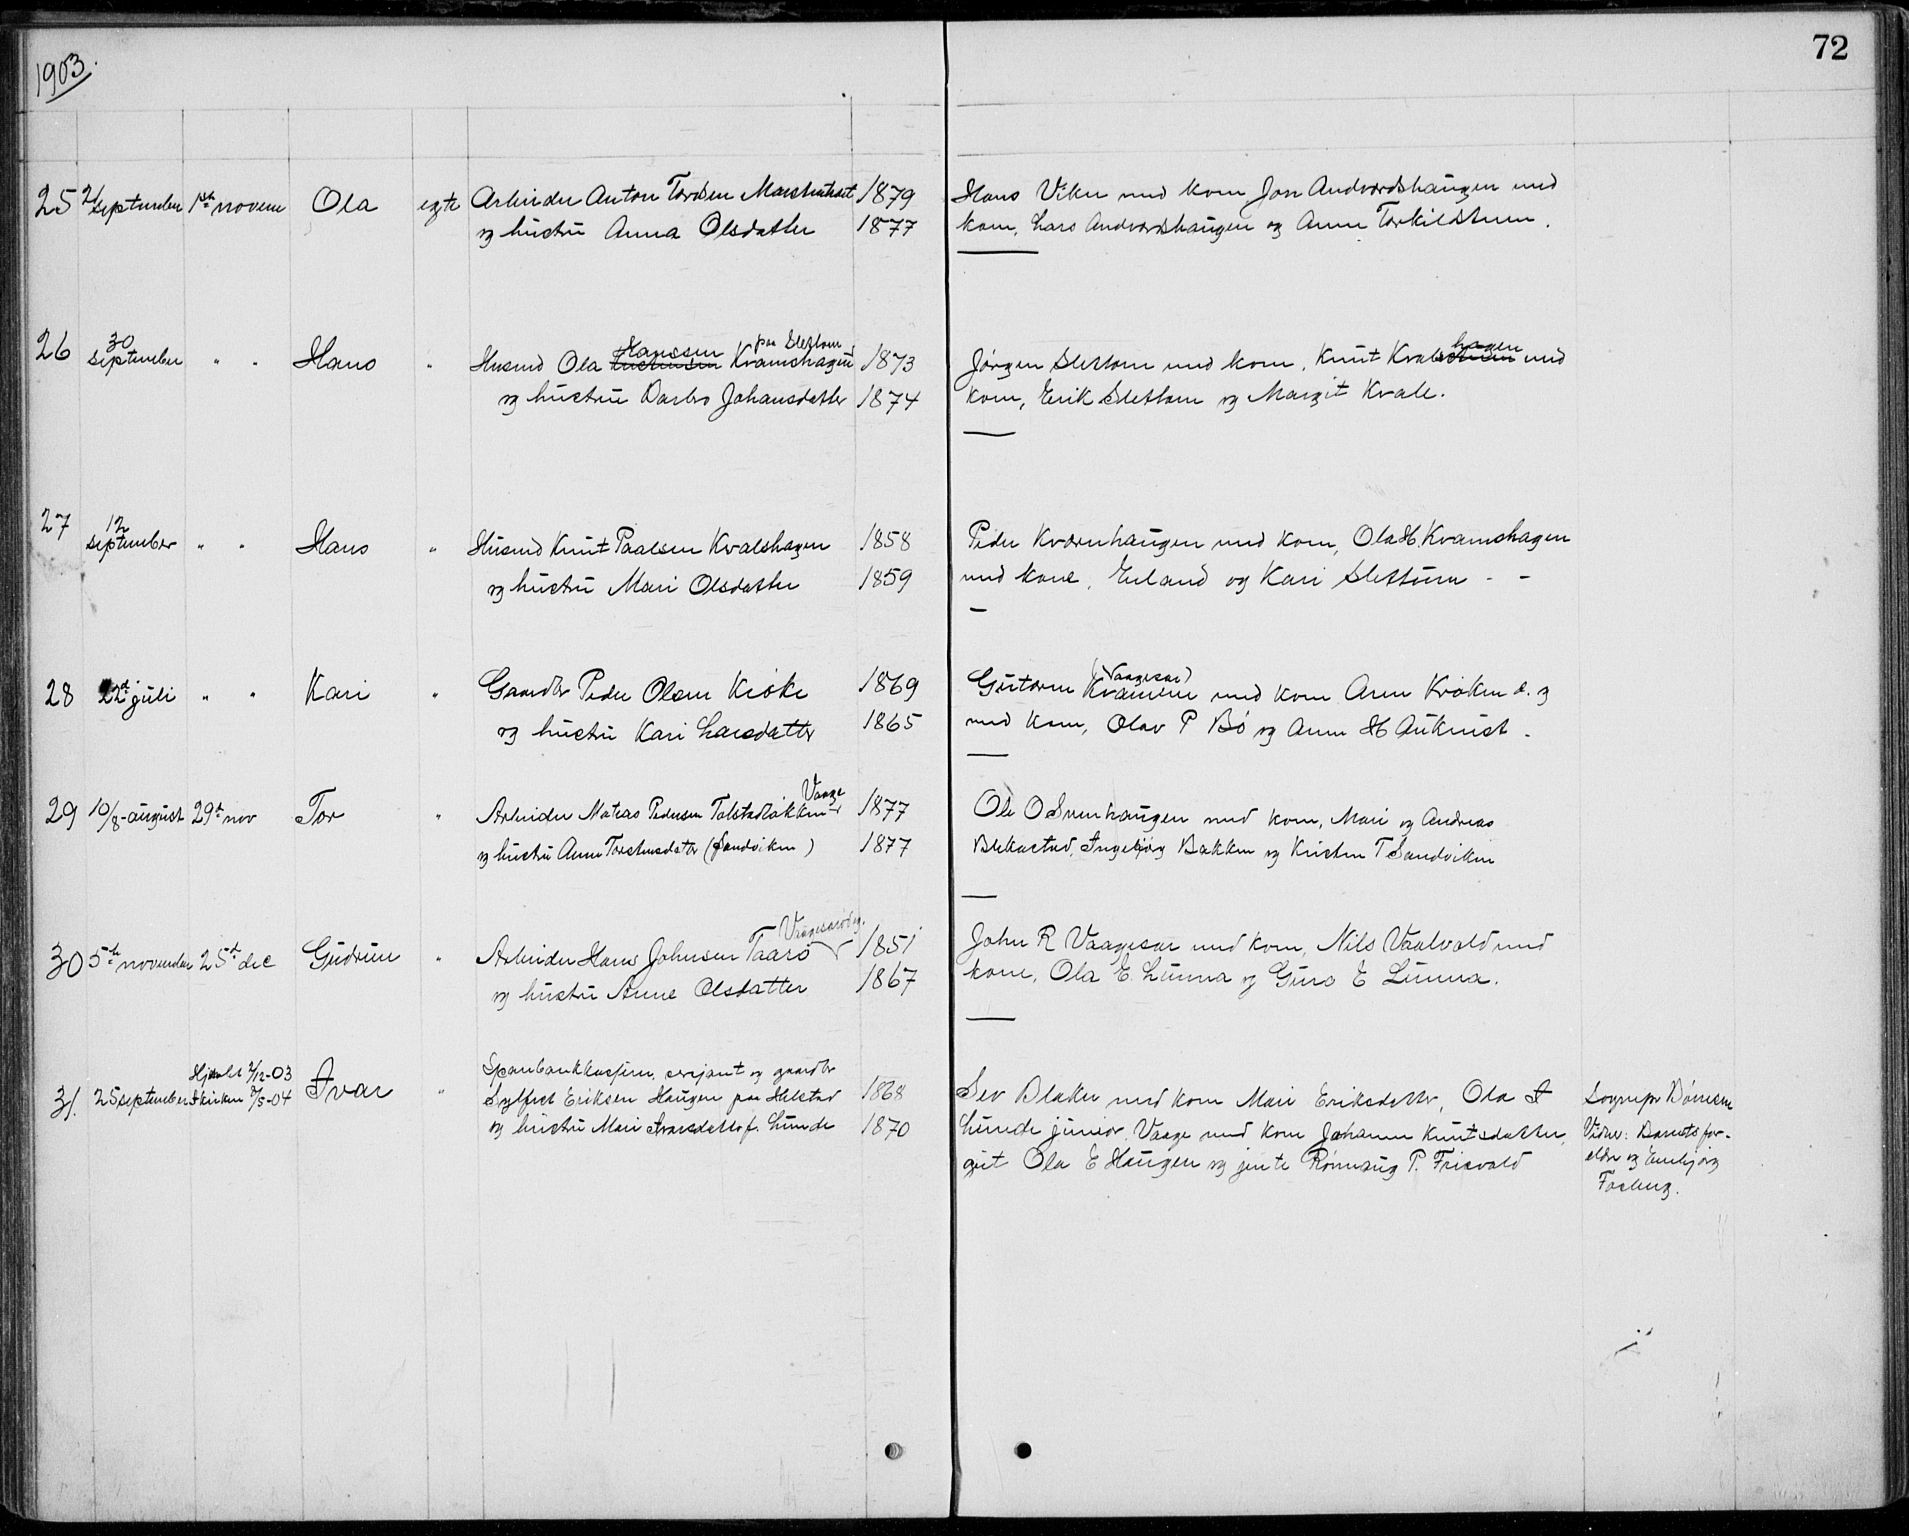 1903.
72
25 21 september 1ste novem Ola egte Arbeider Anton Tordsen 1879
og hustru Anna Olsdatter 1877
Hans Viken med kone Jon Andvordshaugen med
kone, Lars Andvordshaugen og Anne
26 30 september " " Hans " Husmd Ola Hanssen Kramshagen paa Slettom 1873
og hustru Barbro Johansdatter 1874
Jørgen Slettom med kone, Knut Kvalshagen med
kone, Erik Slettom og Margit Kvale.
27 12 september " " Hans " Husmd Knut Paalsen Kvalshagen 1858
og hustru Mari Olsdatter 1859
Peder Kværnhaugen med kone, Ola H. Kramshagen
med kone, Erland og Kari Slettum - -
28 22d juli " " Kari " Gaardbr Peder Olsen Kroke 1869
og hustru Kari Larsdatter 1865
Guttorm Kvamen (Vaagesar) med kone Arne Kroken d. y
med kone, Olav P Bö og Anne H Aukrust.
29 10/8-august 29de nov Tor " Arbeider Matias Pedersen Tolstadløkken Vaage 1877
og hustru Anne Torstensdatter (Sandviken) 1877
Ole O Svenhaugen med kone, Mari og Andreas
Blekastad, Ingebjørg Bakken og Kristen T Sandviken
30 5te november 25de dec Gudrun " Arbeider Hans Johnsen Taarö 1851
og hustru Anne Olsdatter 1867
John R Vaagesar med kone, Nils Vaalvold med
kone, Ola E. Lunna og Guro E Lunna.
31. 25 september Hjemdbt 2/12-03
I kirken 8/5-04 Ivar " Sparebankkasserer, serjant og gaardbr
Sylfest Eriksen Haugen paa Helstad 1868
og hustru Mari Ivarsdatter f. Lunde 1870
Sev Blaker med kone Mari Eriksdatter, Ola I
Lunde junior Vaage med kone Johanne Knutsdatter,
gut Ola E Haugen og jente Rønnaug P. Frisvold
Sognepr
Vidner: Barnets for-
eldre og Embjørg